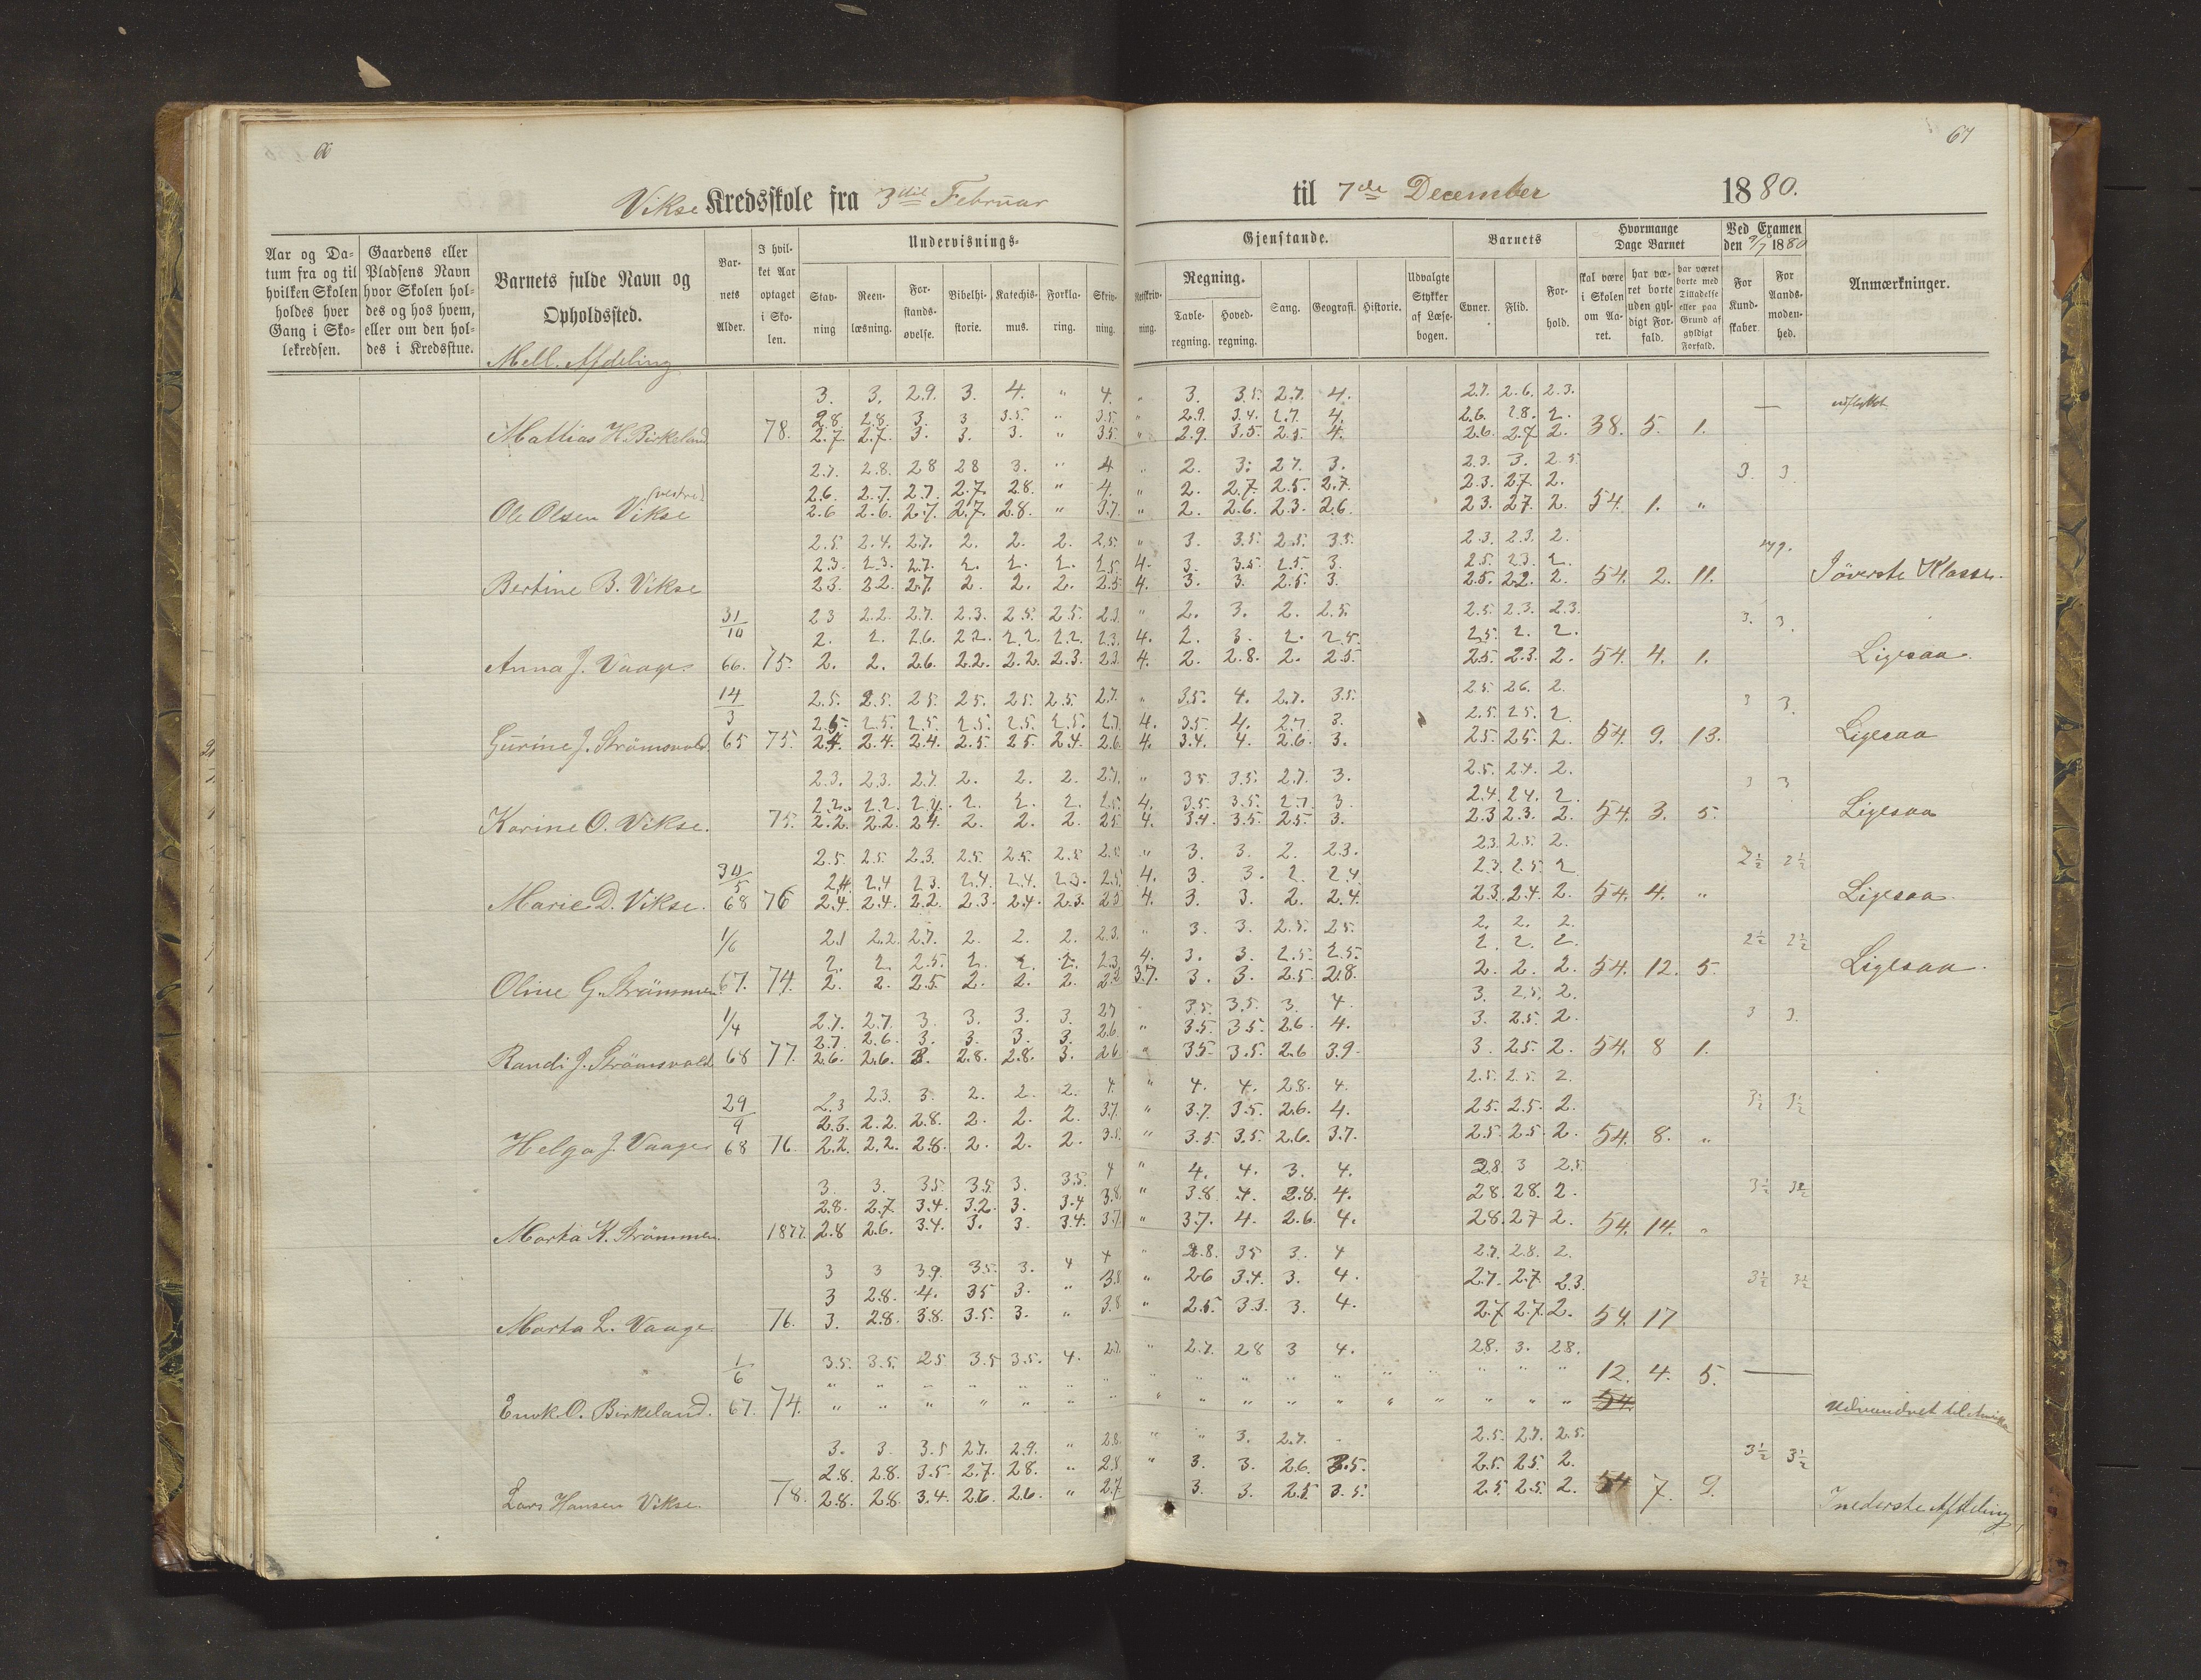 67
Vikse Kredsskole fra 3die Februar til 7de December 1880.
Aar og Datum fra og til hvilken Skolen holdes hver Gang i Skolekredsen.
Gaardens eller Pladsens Navn hvor Skolen holdes og hos hvem, eller om den holdes i Kredsstue.
Barnets fulde Navn og Opholdssted.
Barnets Alder.
I hvilket Aar optaget i Skolen.
Undervisnings-Gjenstande.
Stavning
Reenlæsning.
Forstandsøvelse.
Bibelhistorie.
Katechismus.
Forklaring.
Skrivning.
Retskrivning.
Regning.
Tavleregning.
Hovedregning.
Sang.
Geografi.
Historie.
Udvalgte Stykker af Læsebogen.
Barnets
Evner.
Flid.
Forhold.
Hvormange Dage Barnet
skal være i Skolen om Aaret.
har været borte uden gyldigt Forfald.
har været borte med Tilladelse eller paa Grund af gyldigt Forfald.
Ved Examen den 9/7 1880
For Kundskaber.
For Aandsmodenhed.
Anmærkninger.
Mell. Afdeling
3. 3. 2.9. 3. 4. " 4. " 3. 3.5. 2.7. 4. 2.7. 2.6. 2.3. — udflyttet
2.8. 2.8. 3. 3 3.5. " 3.5. " 2.9. 3.4. 2.7. 4. 2.6. 2.8. 2.
Mathias H. Birkeland 78. 2.7. 2.7. 3. 3. 3. " 3.5. " 2.9. 3.5. 2.5. 4. 2.6. 2.7 2. 38. 5. 1.
2.7. 2.8. 2.8 2.8 3. " 4 " 2. 3. 2.7. 3. 2.3. 3. 2.5 3. 3.
2.6. 2.7. 2.7. 2.7. 2.8. " 4. " 2. 2.7. 2.5. 2.7. 2.3. 2.7. 2.
Ole Olsen Vikse (vestre) 2.6 2.6. 2.7. 2.7. 2.8. " 3.7. " 2. 2.6. 2.3. 2.6. 2.3. 2.7. 2. 54. 1. "
2.5. 2.4. 2.7. 2. 2. 2. 2.5. " 3. 3.5. 2.5. 3.5. 2.3. 2.3. 2. syg.
2.3. 2.3. 2.7. 2. 2. 2. 2.5. 4. 3. 3.5. 2.5. 3. 2.5. 2.3. 2.
Bertine B. Vikse 2.3. 2.2. 2.7. 2. 2. 2. 2.5 4. 3. 3. 2.5. 3. 2.5. 2.2. 2. 54. 2. 11. I överste Klasse.
31/10 2.3 2.2. 2.7. 2.3. 2.5. 2.5. 2.3. " 2. 3. 2. 2.5. 2.5. 2.3. 2.3. 3. 3.
2. 2. 2.6. 2.2. 2.2. 2.2. 2.3. 4. 2. 3. 2. 2.5. 2.5. 2. 2.
Anna J. Vaage 66. 75. 2. 2. 2.6. 2.2. 2.2. 2.3. 2.3. 4. 2. 2.8. 2. 2.5. 2.5. 2.3. 2. 54. 4. 1. Ligesaa.
14/3 2.5. 2.5. 2.5. 2.5. 2.5. 2.5. 2.7. " 3.5. 4. 2.7. 3.5. 2.5. 2.6. 2. 3 3.
2.5. 2.5. 2.5. 2.5. 2.5. 2.5. 2.7 4. 3.5 4. 2.7 3. 2.5. 2.5. 2.
Gurine J. Strömsvold. 65 75. 2.4. 2.4. 2.4. 2.5. 2.5. 2.4. 2.6. 4. 3.4. 4. 2.6. 3. 2.5. 2.5. 2. 54. 9. 13. Ligesaa
2.3. 2.3. 2.7. 2. 2. 2. 2.7. " 3.5 3.5. 2.7. 3. 2.5. 2.4. 2. 3 3
2.2. 2.2. 2.4. 2. 2. 2. 2.5. 4. 3.5. 3.5. 2.7 3. 2.4 2.4. 2.
Karine O. Vikse. 75. 2.2. 2.2. 2.4. 2. 2. 2. 2.5 4. 3.4. 3.5. 2.5. 3. 2.3 2.3. 2. 54. 3. 5. Ligesaa
2.5. 2.5. 2.3. 2.5. 2.5. 2.5 2.5. " 3. 3. 2. 2.3. 2.3. 2.5. 2. 2½ 2½
5 2.4. 2.4 2.3. 2.4. 2.4. 2.3. 2.5. 4. 3. 3. 2. 2.4 2.3. 2.5 2
Marie D. Vikse. 68 76 2.4. 2.4. 2.2. 2.3. 2.4. 2.3. 2.5 4. 3. 3. 2. 2.4. 2.3. 2.4. 2. 54. 4. " Ligesaa.
1/6 2.1 2.2. 2.7. 2. 2. 2. 2.3. " 3. 3. 2.5. 2.5. 2. 2. 2. 2½ 2½
2. 2. 2.5. 2. 2. 2. 2.3 4. 3. 3. 2.5. 2.5. 2. 2. 2.
Oline G. Strömmen. 67. 74. 2. 2. 2.5. 2. 2. 2. 2.2 3.7. 3. 3. 2.5. 2.8. 2. 2. 2. 54. 12. 5. Ligesaa.
1/4 2.7. 2.7. 3. 3. 3. 3. 2.7 3.5. 3.5. 3. 4. 3. 2.5. 2. 3 3.
2.7. 2.6. 3. 3. 3. 3. 2.6. " 3.5. 3.5. 2.6. 4. 3. 2.5. 2.
Randi J. Strömsvold 68 77. 2.6. 2.6. 3. 2.8. 2.8. 3. 2.6 " 3.5. 3.5. 2.6 3.9. 3. 2.5. 2. 54. 8 1.
29/9 2.3 2.3. 3. 2. 2. 2. 4. " 4. 4. 2.8. 4. 2.5. 2.5. 2. 3½ 3½
2.3. 2.2. 2.8. 2. 2. 2. 3.7. " 3.7. 3.5. 2.6. 4. 2.5. 2.5. 2.
Helga J. Vaage 68 76. 2.2. 2.2. 2.8. 2. 2. 2. 3.5. " 3.5. 3.5. 2.6. 3.7. 2.5. 2.5 2. 54. 8. "
3. 3. 3.5. 3.5. 3. 3.5. 4 " 4. 4. 3. 4. 2.8. 3 2.5 3½
2.8. 2.7 3.4. 3.2. 3. 3.4 3.8. " 3.8. 4. 2.8. 4. 2.8. 2.8. 2.
Marta K. Strömmen. 1877. 2.8 2.6. 3.4. 3. 3. 3.4. 3.7. " 3.7. 4. 2.6. 4. 2.8. 2.7 2. 54. 14. "
3 3 3.9. 3.5. 3. 4 4 " 2.8. 3.5 3. 4 2.7. 2.8. 2. 3½ 3½
3 2.8. 4. 3.5 3. " 3.8. " 2.6 3.4. 3. 4. 2.7. 2.7 2.3.
Marta L. Vaage. 76. 3. 2.8. 3.8. 3.5. 3. " 3.8. " 2.5. 3.3. 3. 4. 2.7 2.7. 2. 54. 17
1/6 3.5. 3.5. 2.5 3.5 3.5. 4. 2.7. " 2.7. 2.8 3 4. 2.8. 3. 2.8.
" " " " " " " " " " " " " " " " " 12. 4. 5. —
O. Birkeland. 67. 74. " " " " " " " " " " " " " " " " " 54. Udvandret til Amerika
3. 3. 3.5 2.7. 2.9. " 2.8. " " 3. 2.7. 2.5. 2.7. 2.5. 3½ 3½
2.8. 2.8. 3.5. 2.7. 2.8. " 2.8. " 3. 3. 2.6. 3.5. 2.5. 2.5. 2.
Lars Hansen Vikse 78. 2.8. 2.8. 3.4. 2.6. 2.6. " 2.7. 3. 3. 2.5 3.5. 2.5 2.5. 2. 54 7. 9. I nederste Afdeling